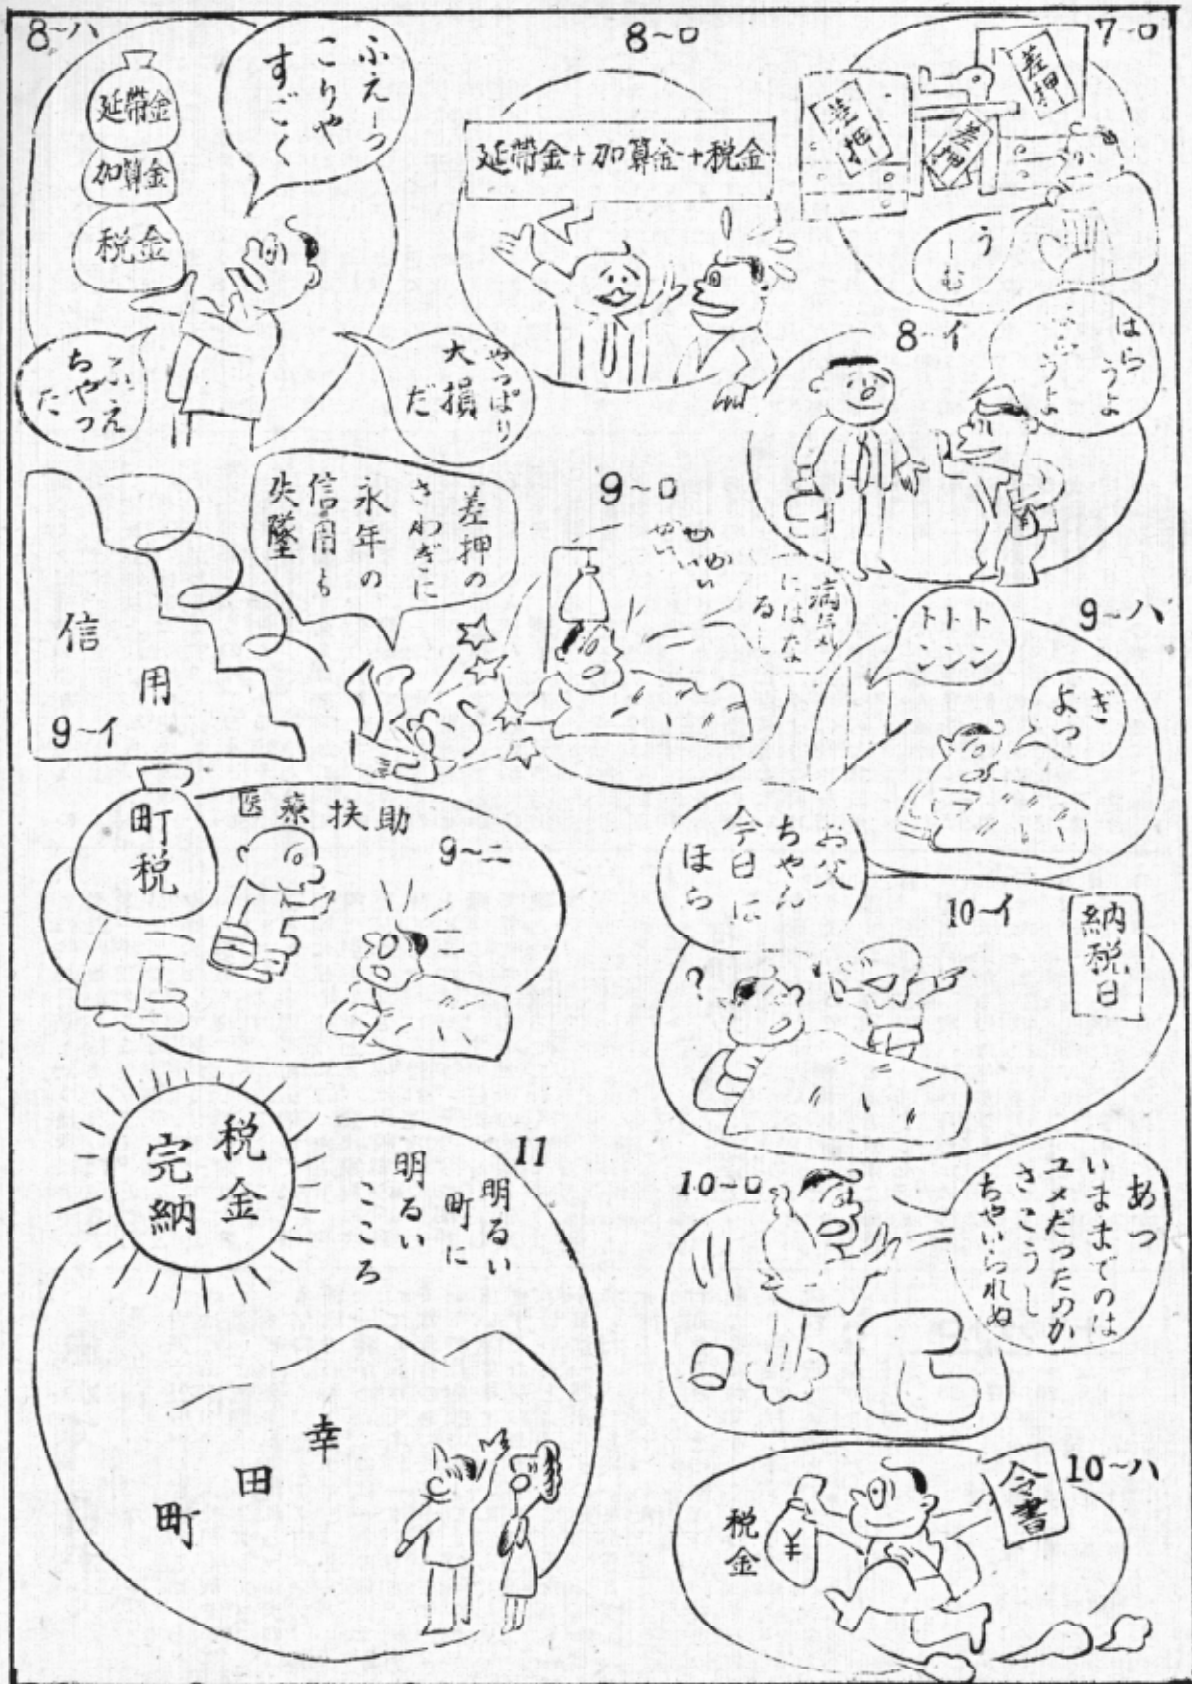 7-ロ
差押
差押
差押
うーむ
8~イ
はらうよ
8~ロ
延帯金+加算金+税金
8~ハ
ふえーっ
こりや
すごく
延帯金
加算金
税金
ふえ
ちやつ
た
やっぱり
大損
だ
9~イ
信用
差押の
さわぎに
永年の
信用も
失墜
9~ロ
病気
にはな
るし
9~ハ
トトト
ンンン
ぎ
よつ
9~ニ
町税
医療扶助
10~イ
納税日
お父
ちゃん
今日に
ほら
?
10~ロ
あつ
いままでのは
ユメだつたのか
さこうし
ちやいられぬ
10~ハ
令書
税金
¥
11
税金
完納
明るい
町に
明るい
こころ
幸田町